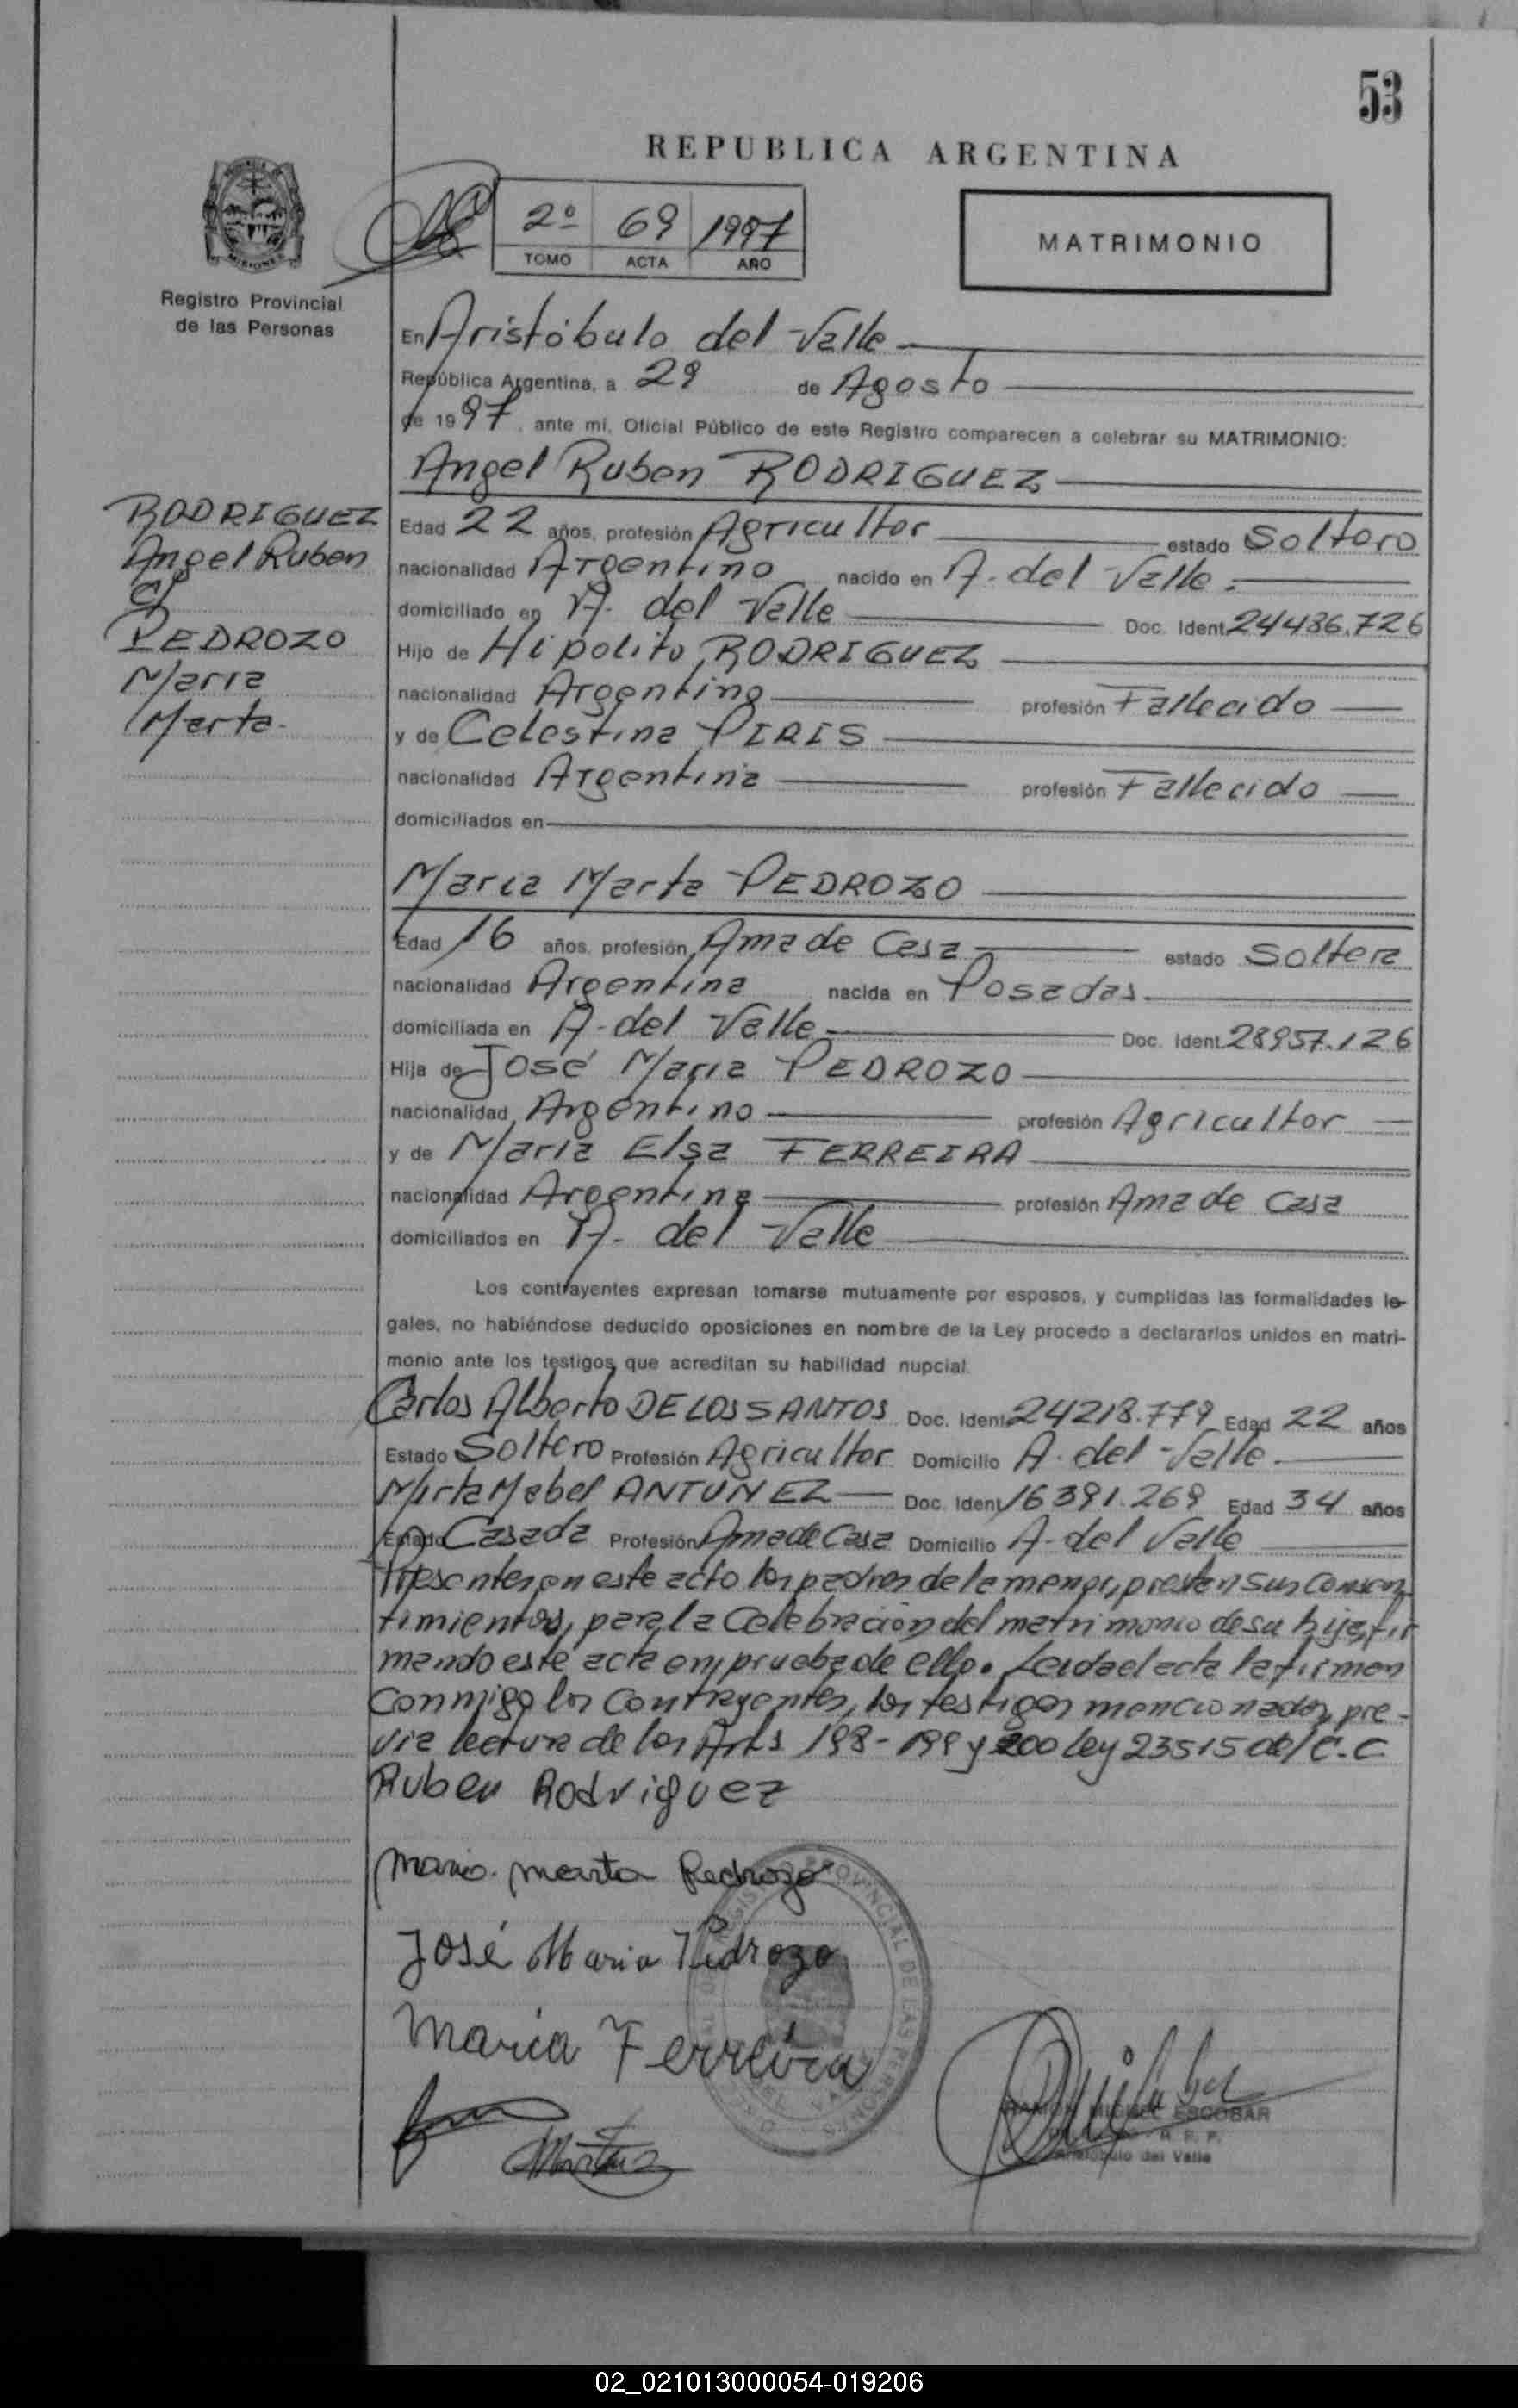 53
REPUBLICA ARGENTINA
2º 69 1997
TOMO ACTA AÑO
MATRIMONIO
Registro Provincial
de las Personas
En Aristóbulo del Valle
República Argentina, a 29 de Agosto
de 1997, ante mi, Oficial Público de este Registro comparecen a celebrar su MATRIMONIO:
Angel Ruben RODRIGUEZ
RODRIGUEZ
Angel Ruben
c/
PEDROZO
Maria
Marta.
Edad 22 años, profesión Agricultor estado Soltero
nacionalidad Argentino nacido en A. del Valle.
domiciliado en A. del Valle Doc. Ident. 24486.726
Hijo de Hipolito RODRIGUEZ
nacionalidad Argentino profesión Fallecido
y de Celestina PIRIS
nacionalidad Argentina profesión Fallecido
domiciliados en
Maria Marta PEDROZO
Edad 16 años, profesión Ama de Casa estado Soltera
nacionalidad Argentina nacida en Posadas.
domiciliada en A. del Valle Doc. Ident. 28957.126
Hija de José Maria PEDROZO
nacionalidad Argentino profesión Agricultor
y de Maria Elsa FERREIRA
nacionalidad Argentina profesión Ama de Casa
domiciliados en A. del Valle
Los contrayentes expresan tomarse mutuamente por esposos, y cumplidas las formalidades le-
gales, no habiéndose deducido oposiciones en nombre de la Ley procedo a declararlos unidos en matri-
monio ante los testigos que acreditan su habilidad nupcial.
Carlos Alberto DE LOS SANTOS Doc. Ident. 24218.779 Edad 22 años
Estado Soltero Profesión Agricultor Domicilio A. del Valle.
Mirta Mabel ANTUNEZ Doc. Ident. 16391.269 Edad 34 años
Estado Casada Profesión Ama de Casa Domicilio A. del Valle
Presentes en este acto los padres de la menor, prestan sus consen-
timientos, para la celebración del matrimonio de su hija, fir
mando este acta en prueba de ello. Leida el acta la firman
conmigo los contrayentes, los testigos mencionados, pre-
via lectura de los Arts 198-199 y 200 Ley 23515 del C.C.
Ruben Rodriguez
Maria Marta Pedrozo
José Maria Pedrozo
Maria Ferreira
RAMON MIGUEL ESCOBAR
R. P. P.
Aristóbulo del Valle
02_021013000054-019206